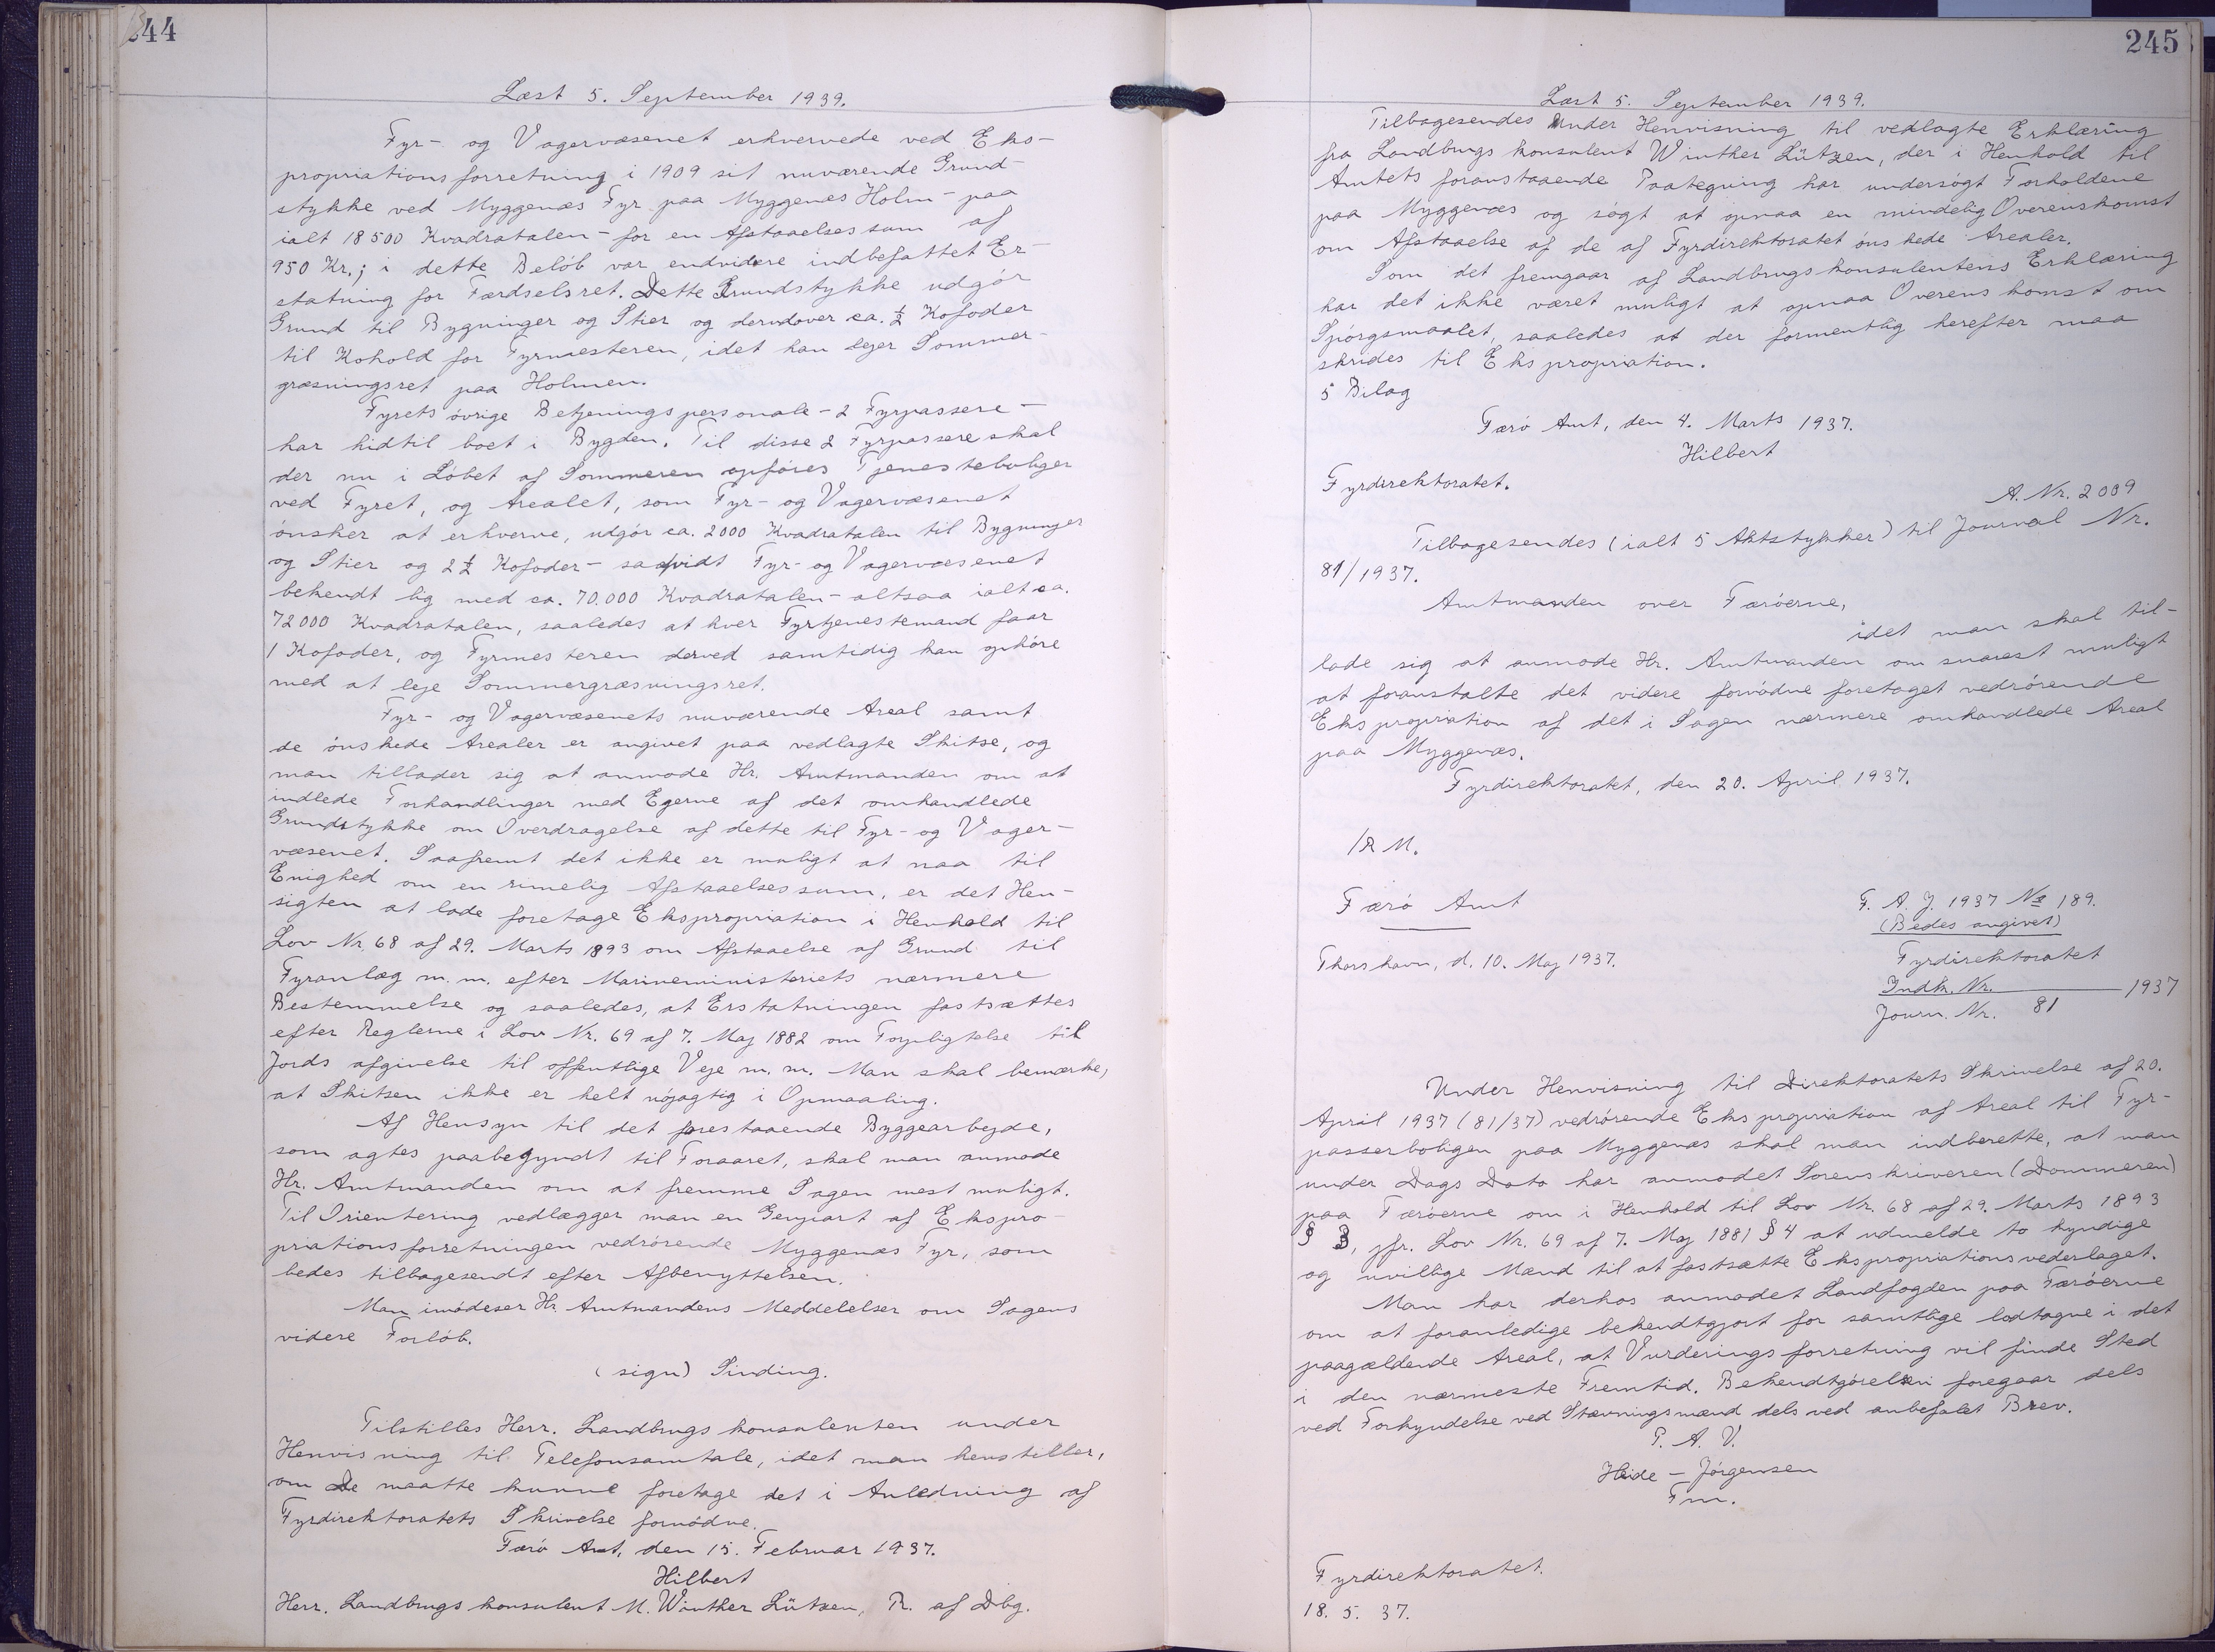 244
Læst 5. September 1939.
Fyr- og Vagervæsenet erhvervede ved Eks-
propriationsforretning i 1909 sit nuværende Grund-
stykke ved Myggenæs Fyr paa Myggenæs Holm - paa
ialt 18500 Kvadratalen - for en Afstaaelsessum af
950 Kr.; i dette Beløb var endvidere indbefattet Er-
statning for Færdselsret. Dette Grundstykke udgør
Grund til Bygninger og Stier og derudover ca. ½ Kofoder
til Kohold for Fyrmesteren, idet han lejer Sommer-
græsningsret paa Holmen.
Fyrets øvrige Betjeningspersonale - 2 Fyrpassere -
har hidtil boet i Bygden. Til disse 2 Fyrpassere skal
der nu i Løbet af Sommeren opføres Tjenesteboliger
ved Fyret, og Arealet, som Fyr- og Vagervæsenet
ønsker at erhverve, udgør ca. 2000 Kvadratalen til Bygninger
og Stier og 2½ Kofoder - saavidt Fyr- og Vagervæsenet
bekendt lig med ca. 70.000 Kvadratalen - altsaa ialt ca.
72000 Kvadratalen, saaledes at hver Fyrtjenestemand faar
1 Kofoder, og Fyrmesteren derved samtidig kan ophøre
med at leje Sommergræsningsret.
Fyr- og Vagervæsenets nuværende Areal samt
de ønskede Arealer er angivet paa vedlagte Skitse, og
man tillader sig at anmode Hr. Amtmanden om at
indlede Forhandlinger med Ejerne af det omhandlede
Grundstykke om Overdragelse af dette til Fyr- og Vager-
væsenet. Saafremt det ikke er muligt at naa til
Enighed om en rimelig Afstaaelsessum, er det Hen-
sigten at lade foretage Ekspropriation i Henhold til
Lov Nr 68 af 29. Marts 1893 om Afstaaelse af Grund til
Fyranlæg m.m. efter Marineministeriets nærmere
Bestemmelse og saaledes, at Erstatningen fastsættes
efter Reglerne i Lov Nr. 69 af 7. Maj 1882 om Forpligtelse til
Jords afgivelse til offentlige Veje m.m. Man skal bemærke,
at Skitsen ikke er helt nøjagtig i Opmaaling.
Af Hensyn til det forestaaende Byggearbejde,
som agtes paabegyndt til Foraaret, skal man anmode
Hr. Amtmanden om at fremme Sagen mest muligt.
Til Orientering vedlægger man en Genpart af Ekspro-
priationsforretningen vedrørende Myggenæs Fyr, som
bedes tilbagesendt efter Afbenyttelsen.
Man imødeser Hr. Amtmandens Meddelelser om Sagens
videre Forløb.
(sign) Sinding.
Tilstilles Herr. Landbrugskonsulenten under
Henvisning til Telefonsamtale, idet man henstiller,
om De maatte kunne foretage det i Anledning af
Fyrdirektoratets Skrivelse fornødne.
Færø Amt, den 15. Februar 1937.
Hilbert
Herr. Landbrugskonsulent M. Winther Lützen, R. af Dbg.
245
Læst 5. September 1939.
Tilbagesendes under Henvisning til vedlagte Erklæring
fra Landbrugskonsulent Winther Lützen, der i Henhold til
Amtets foranstaaende Paategning har undersøgt Forholdene
paa Myggenæs og søgt at opnaa en mindelig Overenskomst
om Afstaaelse af de af Fyrdirektoratet ønskede Arealer.
Som det fremgaar af Landbrugskonsulentens Erklæring
har det ikke været muligt at opnaa Overenskomst om
Spørgsmaalet, saaledes at der formentlig herefter maa
skrides til Ekspropriation.
5 Bilag
Færø Amt, den 4. Marts 1937.
Hilbert
Fyrdirektoratet.
A. Nr. 2009
Tilbagesendes (ialt 5 Aktstykker) til Journal Nr.
81/1937.
Amtmanden over Færøerne,
idet man skal til-
lade sig at anmode Hr. Amtmanden om snarest muligt
at foranstalte det videre fornødne foretaget vedrørende
Ekspropriation af det i Sagen nærmere omhandlede Areal
paa Myggenæs.
Fyrdirektoratet, den 20. April 1937.
/R M.
Færø Amt
F. A. J. 1937 No 189.
(Bedes angivet)
Thorshavn, d. 10. Maj 1937.
Fyrdirektoratet
Indk. Nr. 1937
Journ. Nr. 81
Under Henvisning til Direktoratets Skrivelse af 20.
April 1937 (81/37) vedrørende Ekspropriation af Areal til Fyr-
passerboligen paa Myggenæs skal man indberette, at man
under Dags Dato har anmodet Sorenskriveren (Dommeren)
paa Færøerne om i Henhold til Lov Nr. 68 af 29. Marts 1893
§ 3, jfr. Lov Nr. 69 af 7. Maj 1881 § 4 at udmelde to kyndige
og uvillige Mænd til at fastsætte Ekspropriationsvederlaget.
Man har derhos anmodet Landfogden paa Færøerne
om at foranledige bekendtgjort for samtlige lodtagne i det
paagældende Areal, at Vurderingsforretning vil finde Sted
i den nærmeste Fremtid. Bekendtgørelsen foregaar dels
ved Forkyndelse ved Stævningsmænd dels ved anbefalet Brev.
P. A. V.
Heide - Jørgensen
Fm.
Fyrdirektoratet.
18. 5. 37.